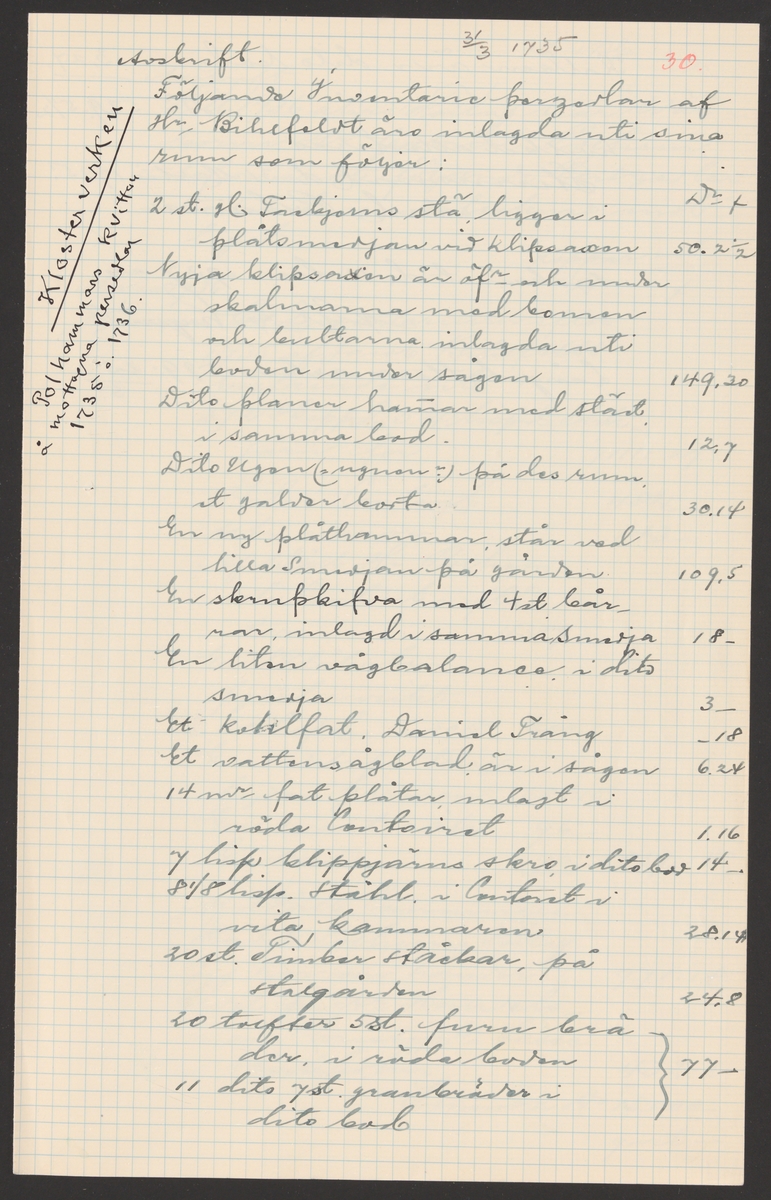 31/3 1735
30.
Avskrift.
Följande Inventarie perzedlar af
Hr. Bihefeldt äro inlagda uti sina
rum som följer:
Klosterverken
Polhammars kvitton
å mottagna persedlar
1735 o. 1736.
2 st. gl. Tackjerns stä, ligger i
plåtsmedjan vid klipsaxen 50.2 1/2
Nyja klipsaxen är öfr och under
skalmarna med bommen
och bultarna, inlagda uti
boden under sågen 149.20
Dito planer hamar med städ,
i samma bod. 12,7
Dito Ugen (= ugnen :) på des rum,
et galder borta 30.14
En ny plåthammar, står ved
lilla Smedjan på gården 109,5
En skrufskifva med 4 st bår-
rar, inlagd i samma Smedja 18-
En liten vågbalance, i dito
smedja 3-
Et kohlfat, Daniel Trång -18
Et vattensågblad, är i sågen 6.24
14 mr fat plåtar, inlagt i
röda Contoiret 1.16
7 lisp klippjärns skro, i dito bod 14-
8 1/8 lisp. Ståhl, i Contoret i
vita kammaren 28.14
20 st. Timber Ståckar, på
stalgården 24,8
20 tolfter 5 st. furu brä
der, i röda boden
11 dito 7 st. granbräder i 77-
dito bod